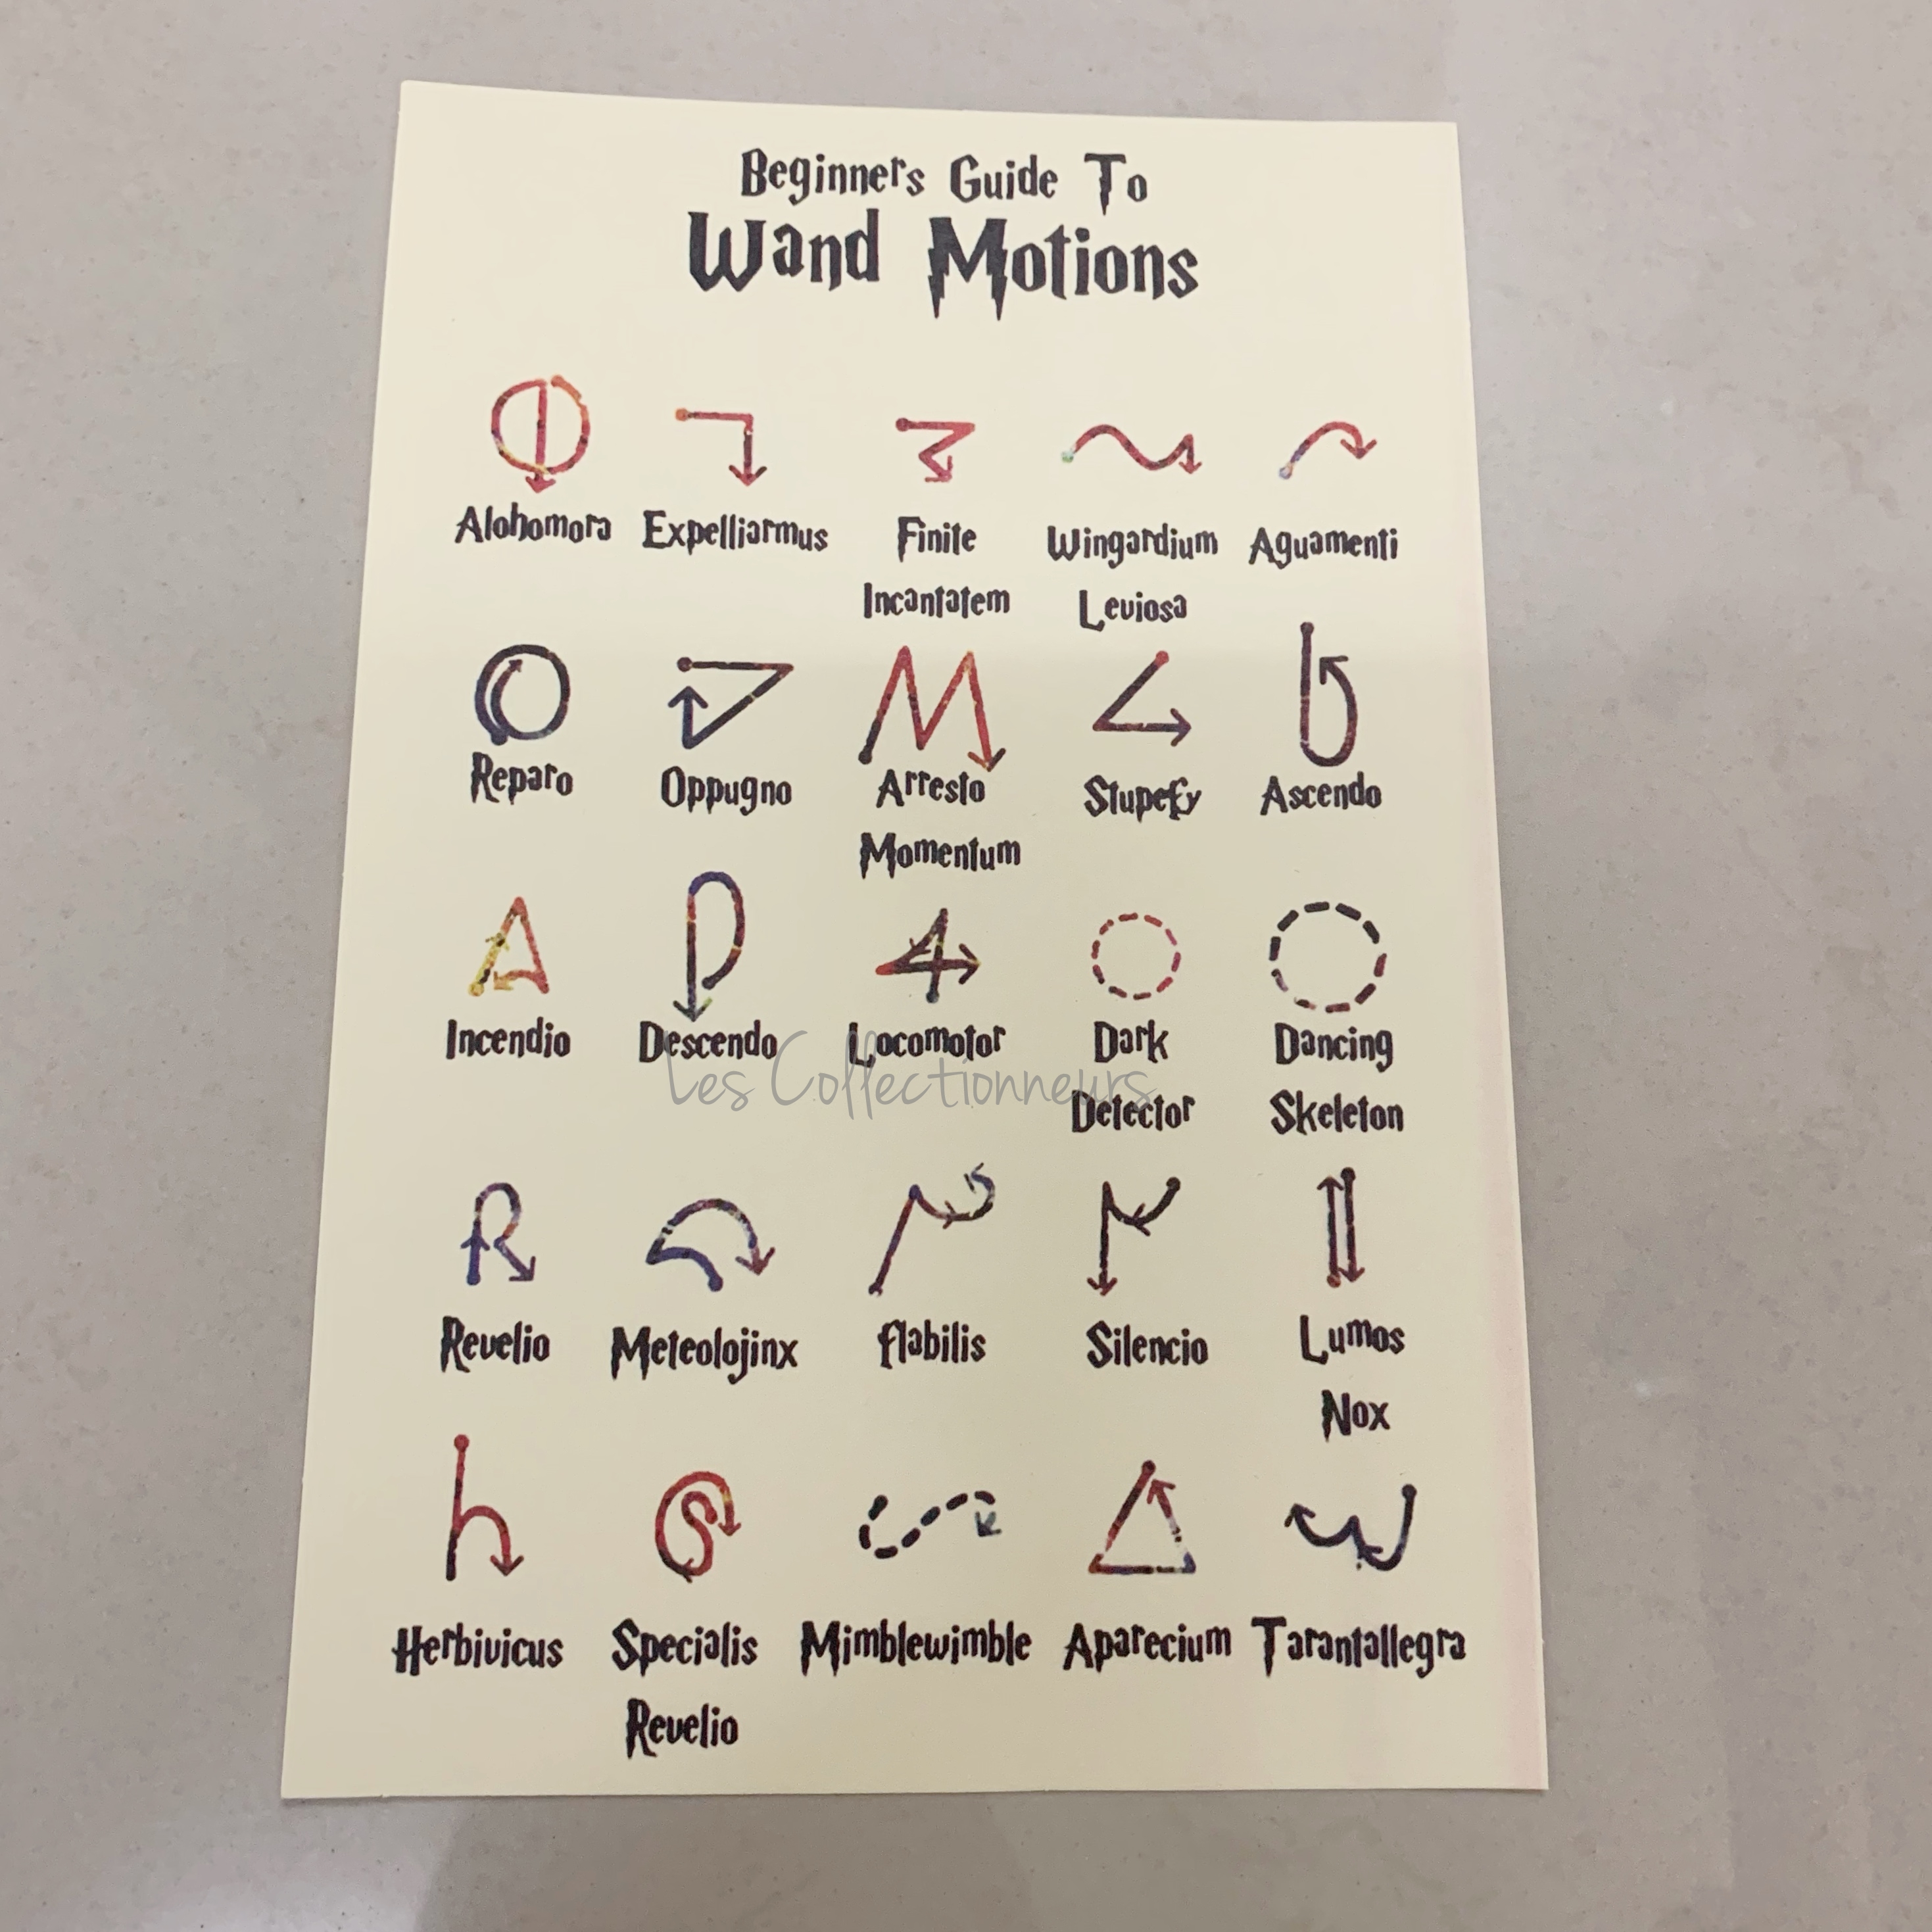 Beginners Guide To
Wand Motions
Alohomora Expelliarmus Finite Wingardium Aguamenti
Incantatem Leviosa
Reparo Oppugno Arresto Stupefy Ascendo
Momentum
Incendio Descendo Locomotor Dark Dancing
Les Collectionneurs
Detector Skeleton
Revelio Meteolojinx flabilis Silencio Lumos
Nox
Herbivicus Specialis Mimblewimble Aparecium Tarantallegra
Revelio